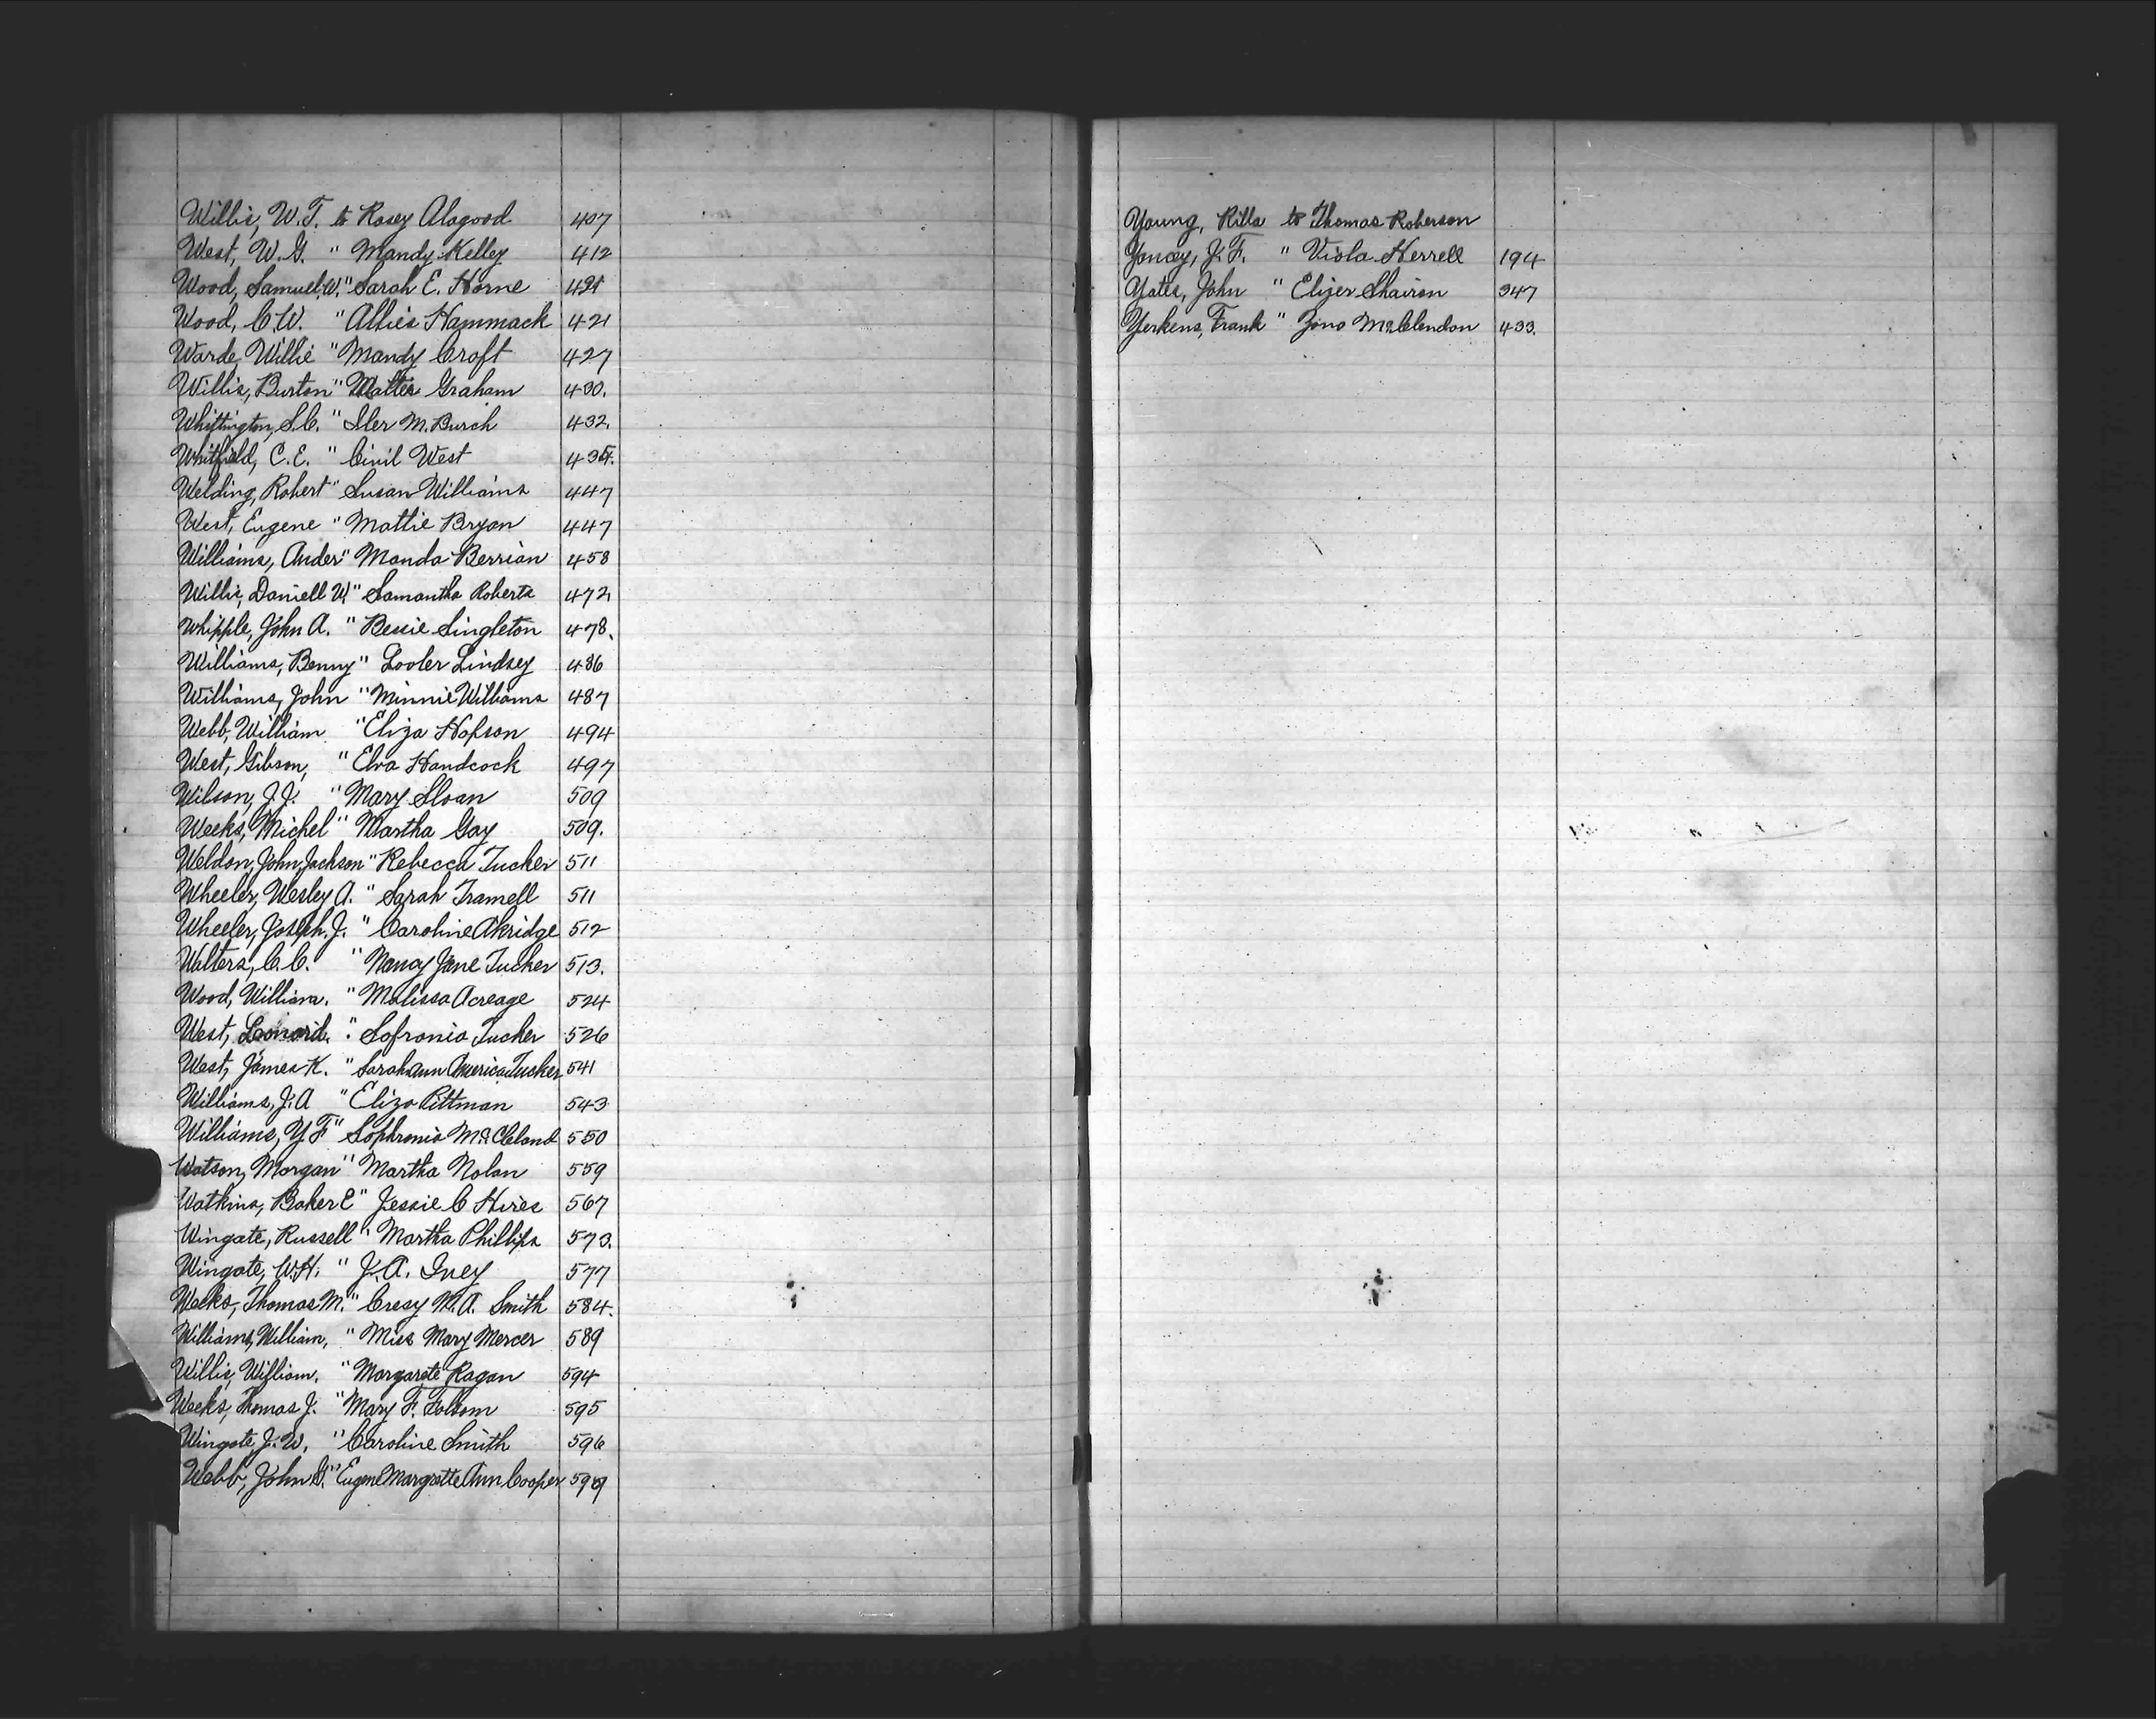 Willis, W. T. to Rosey Alagood 407
West, W. G. " Mandy Kelley 412
Wood, Samuel W. " Sarah E. Horne 421
Wood, C. W. " Allies Hammack 421
Warde, Willie " Mandy Croft 427
Willis, Burton " Mattie Graham 430.
Whittington, S. C. " Iler M. Burch 432.
Whitfield, C. E. " Civil West 434.
Welding, Robert " Susan Williams 447
West, Eugene " Mattie Bryan 447
Williams, Ander " Manda Berrian 458
Willis, Daniell W. " Samantha Roberts 472
Whipple, John A. " Bessie Singleton 478.
Williams, Benny " Looler Lindsey 486
Williams, John " Minnie Williams 487
Webb, William " Eliza Hopson 494
West, Gibson, " Elva Handcock 497
Wilson, J. J. " Mary Sloan 509
Weeks, Michel " Martha Gay 509.
Weldon, John Jackson " Rebecca Tucker 511
Wheeler, Wesley A. " Sarah Tramell 511
Wheeler, Joseph. J. " Caroline Akridge 512
Walters, C. C. " Nancy Jane Tucker 513.
Wood, William. " Malissa Acreage 524
West, Leonard. " Sofronia Tucker 526
West, James K. " Sarah Ann America Tucker 541
Williams, J. A " Eliza Pittman 543
Williams, Y F " Sophronia McCleland 550
Watson, Morgan " Martha Nolan 559
Watkins, Baker E " Jessie C Hires 567
Wingate, Russell " Martha Phillips 573.
Wingate, W. H. " J. A. Ivey 577
Weeks, Thomas M. " Cresy M. A. Smith 584.
Williams, William, " Miss Mary Mercer 589
Willis, William. " Margarete Ragan 594
Weeks, Thomas J. " Mary F. Folsom 595
Wingate, J. W. " Caroline Smith 596
Webb, John G. " Eugene Margrette Ann Cooper 599
Young, Rilla to Thomas Roberson
Yancy, J. F. " Viola Herrell 194
Yates, John " Elizer Shairon 347
Yerkens, Frank " Zeno McClendon 433.